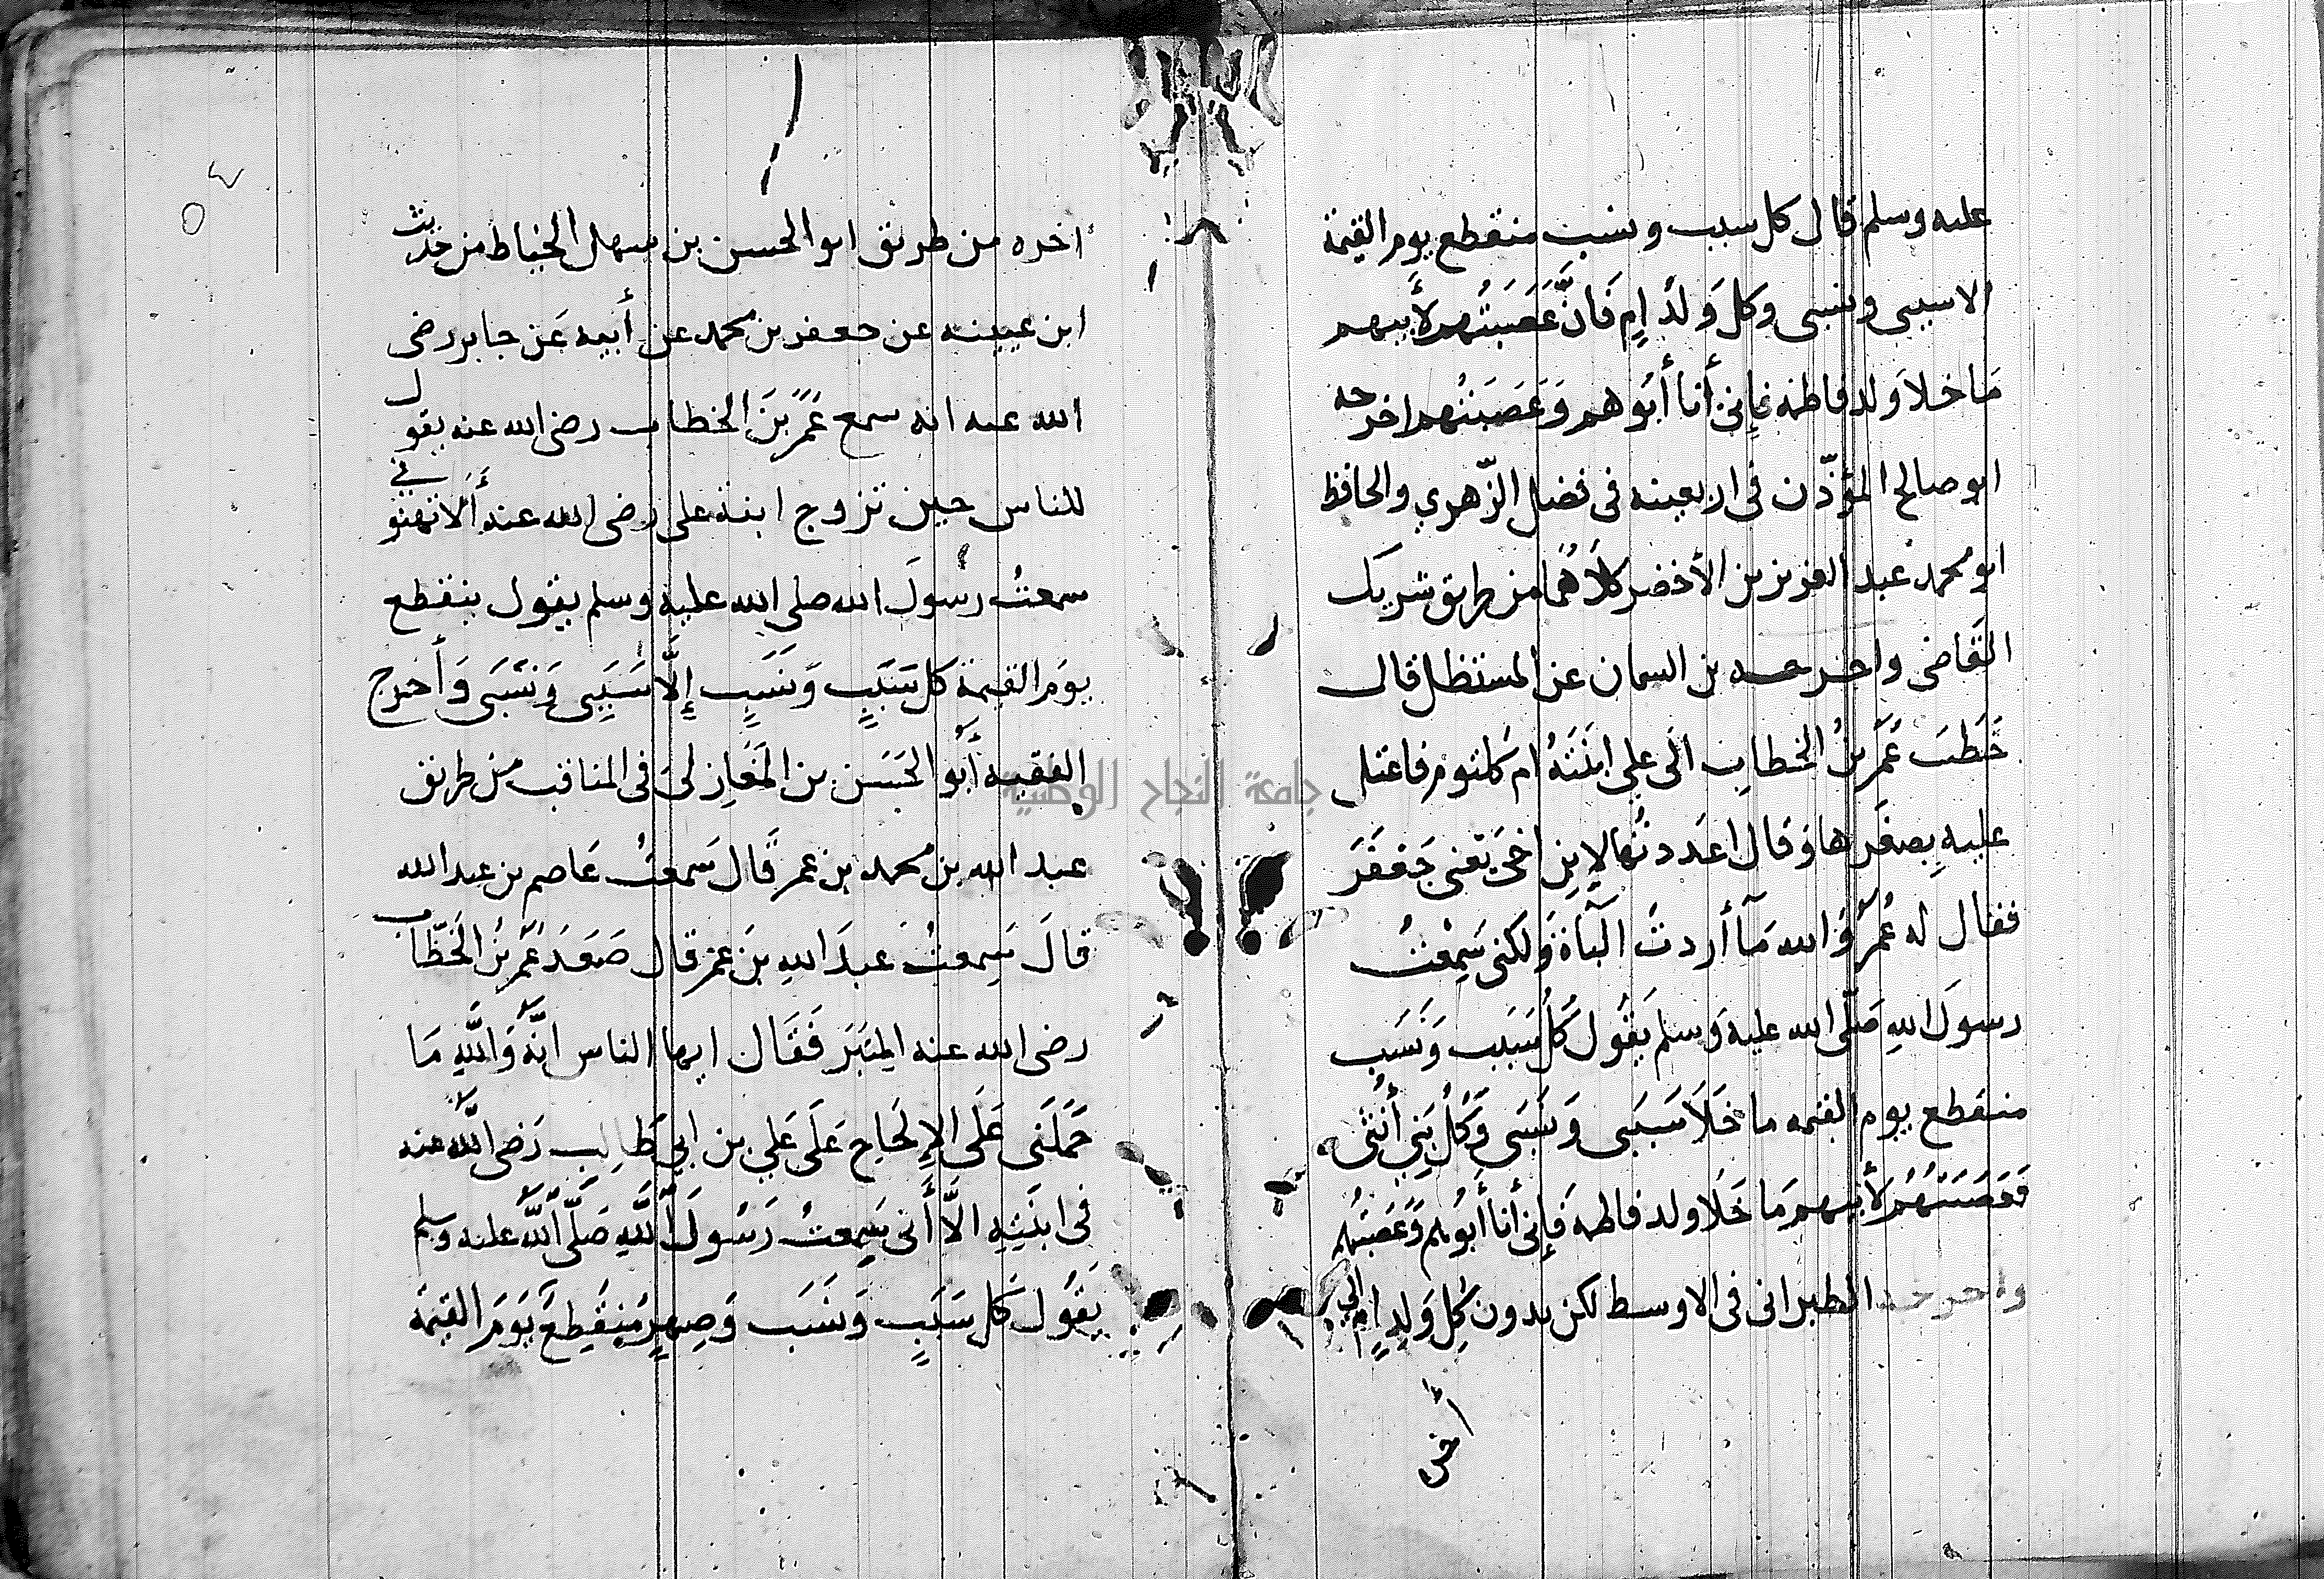 عليه وسلم قال كل سبب ونسب منقطع يوم القيمة
الا سببى ونسبى وكل وَلَدِ اِم فَاِنَّ عَصَبَتُهم لأَبيهم
مَا خلا وَلد فاطمه فإنىّ أنا أَبُوهم وَعَصَبَتُهم اخرجه
ابو صالح المؤذّن فى اربعينه فى فضل الزّهري والحافظ
ابو محمد عبد العزيز بن الأخضر كلاَهُمَا من طريق شريك
القَاضى واخرجه بن السمان عن المستظل قال
خَطَبَ عُمَر بنُ الخطابِ الَى علي ابنَتَهُ ام كلثوم فاعتل
عليهِ بِصغَرها وَقال اعَددتُها لاِبنِ اخى يَعنى جَعفَرَ
فقال له عُمَرُ وَالله مَآ أردتُ الْبآة وَلكنى سَمِعْتُ
رسولَ اللهِ صَلّى الله عليه وَسلم يَقُول كُلُ سَبَب وَنَسَب
منقطع يوم القيمه ما خَلَا سَبَبى وَنَسَبى وَكُلُ بَنِي أُنْثى
فَعَصَبَتُهُم لأَبيهم مَا خَلَا ولد فاطمه فَإنى أنا أَبُوهم وَعَصَبَتُهم
واخرجه الطبرانى فى الاوسط لكن بدون كُلِ وَلِدِ اِم الى
اخره
اخره من طريق ابو الحسن بن سهل الخياط من حَدِيث
ابن عيينه عن جعفر بن محمد عن أَبيه عَن جابر رضى
الله عنه انه سمع عُمَرَ بنَ الخطاب رضى الله عنه يقول
للناس حين تزوج ابنة على رضى الله عنه أَلَا تهنونى
سمعتُ رسُولَ الله صلى الله عليه وسلم يقول ينقطع
يومَ القيمة كل سَبَبٍ وَنسَبٍ إِلَّا سَبَبِى وَنسَبَى وَأَخرج
الفقيه أبُو الحَسَن بن المَغَازِلى فى المناقب من طريق
عبد الله بن محمد بن عمر قَال سَمعتُ عَاصم بن عبد الله
قالَ سَمِعتُ عَبدَ اللهِ بنَ عمر قال صَعَدَ عُمَرُ بنُ الخَطّاب
رضى الله عنه المِنْبَرَ فَقَال ايها الناس انَّهُ وَاللَّهِ مَا
حَمَلَنى عَلَى الإِلحَاحِ عَلَى عَلي بن ابي طَالِب رَضى اللَّه عنه
فى ابنَتِهِ الَّا أَنى سَمِعتُ رَسُولَ اللَّهِ صَلَّى اللَّهُ عليه وَسلم
يَقُول كَل سَبَبٍ وَنَسَب وَصِهرٍ مُنقَطِعٌ يَومَ القيمَة